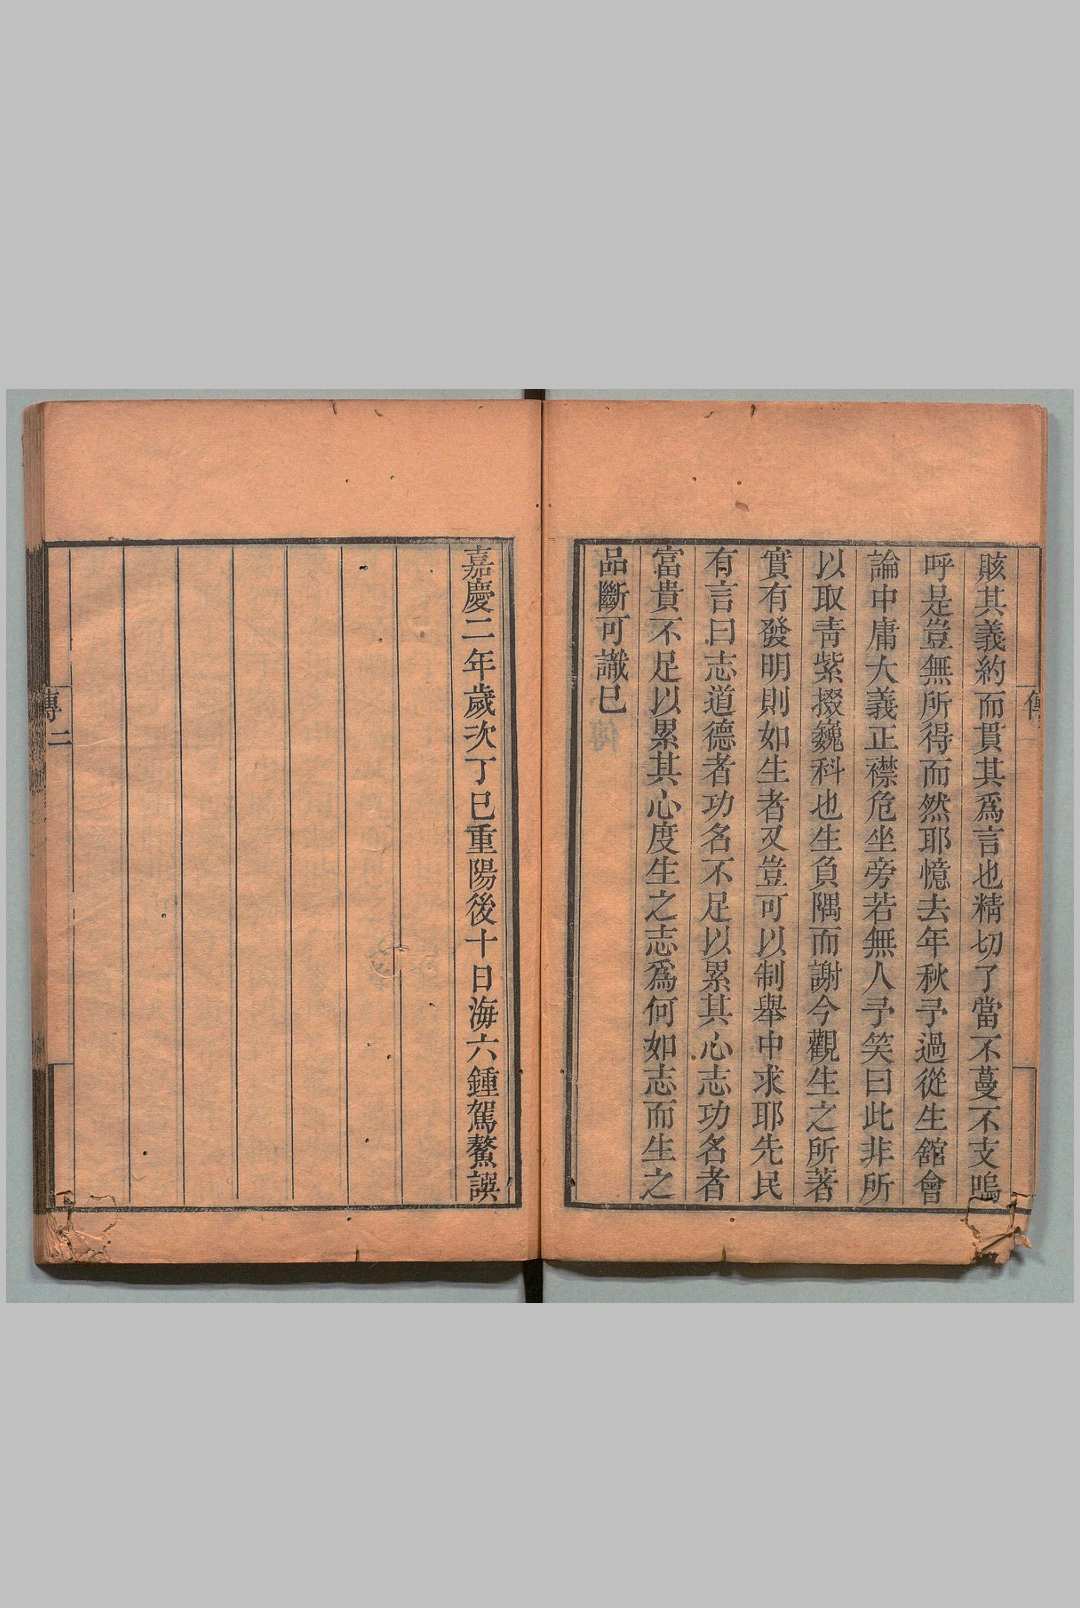 賅其義約而貫其爲言也精切了當不蔓不支嗚
呼是豈無所得而然耶憶去年秋予過從生舘會
論中庸大義正襟危坐旁若無人予笑曰此非所
以取靑紫掇巍科也生負隅而謝今觀生之所著
實有發明則如生者又豈可以制舉中求耶先民
有言曰志道德者功名不足以累其心志功名者
富貴不足以累其心度生之志爲何如志而生之
品斷可識已
嘉慶二年歲次丁巳重陽後十日海六鍾駕鰲譔
傳 二